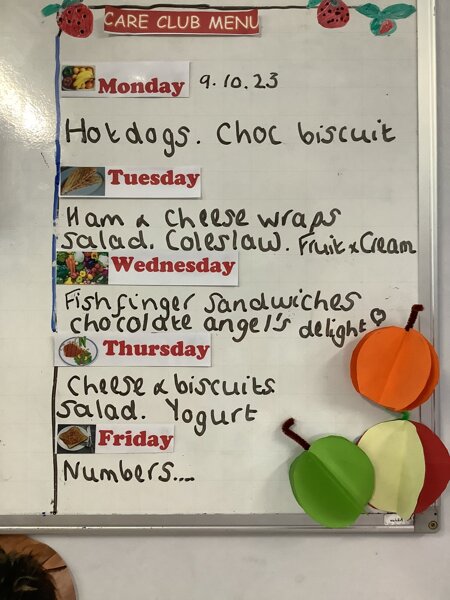 CARE CLUB MENU
Monday 9.10.23
Hotdogs. Choc biscuit
Tuesday
Ham & cheese wraps
salad. Coleslaw. Fruit & Cream
Wednesday
Fishfinger sandwiches
chocolate angel's delight
Thursday
Cheese & biscuits
salad. Yogurt
Friday
Numbers....